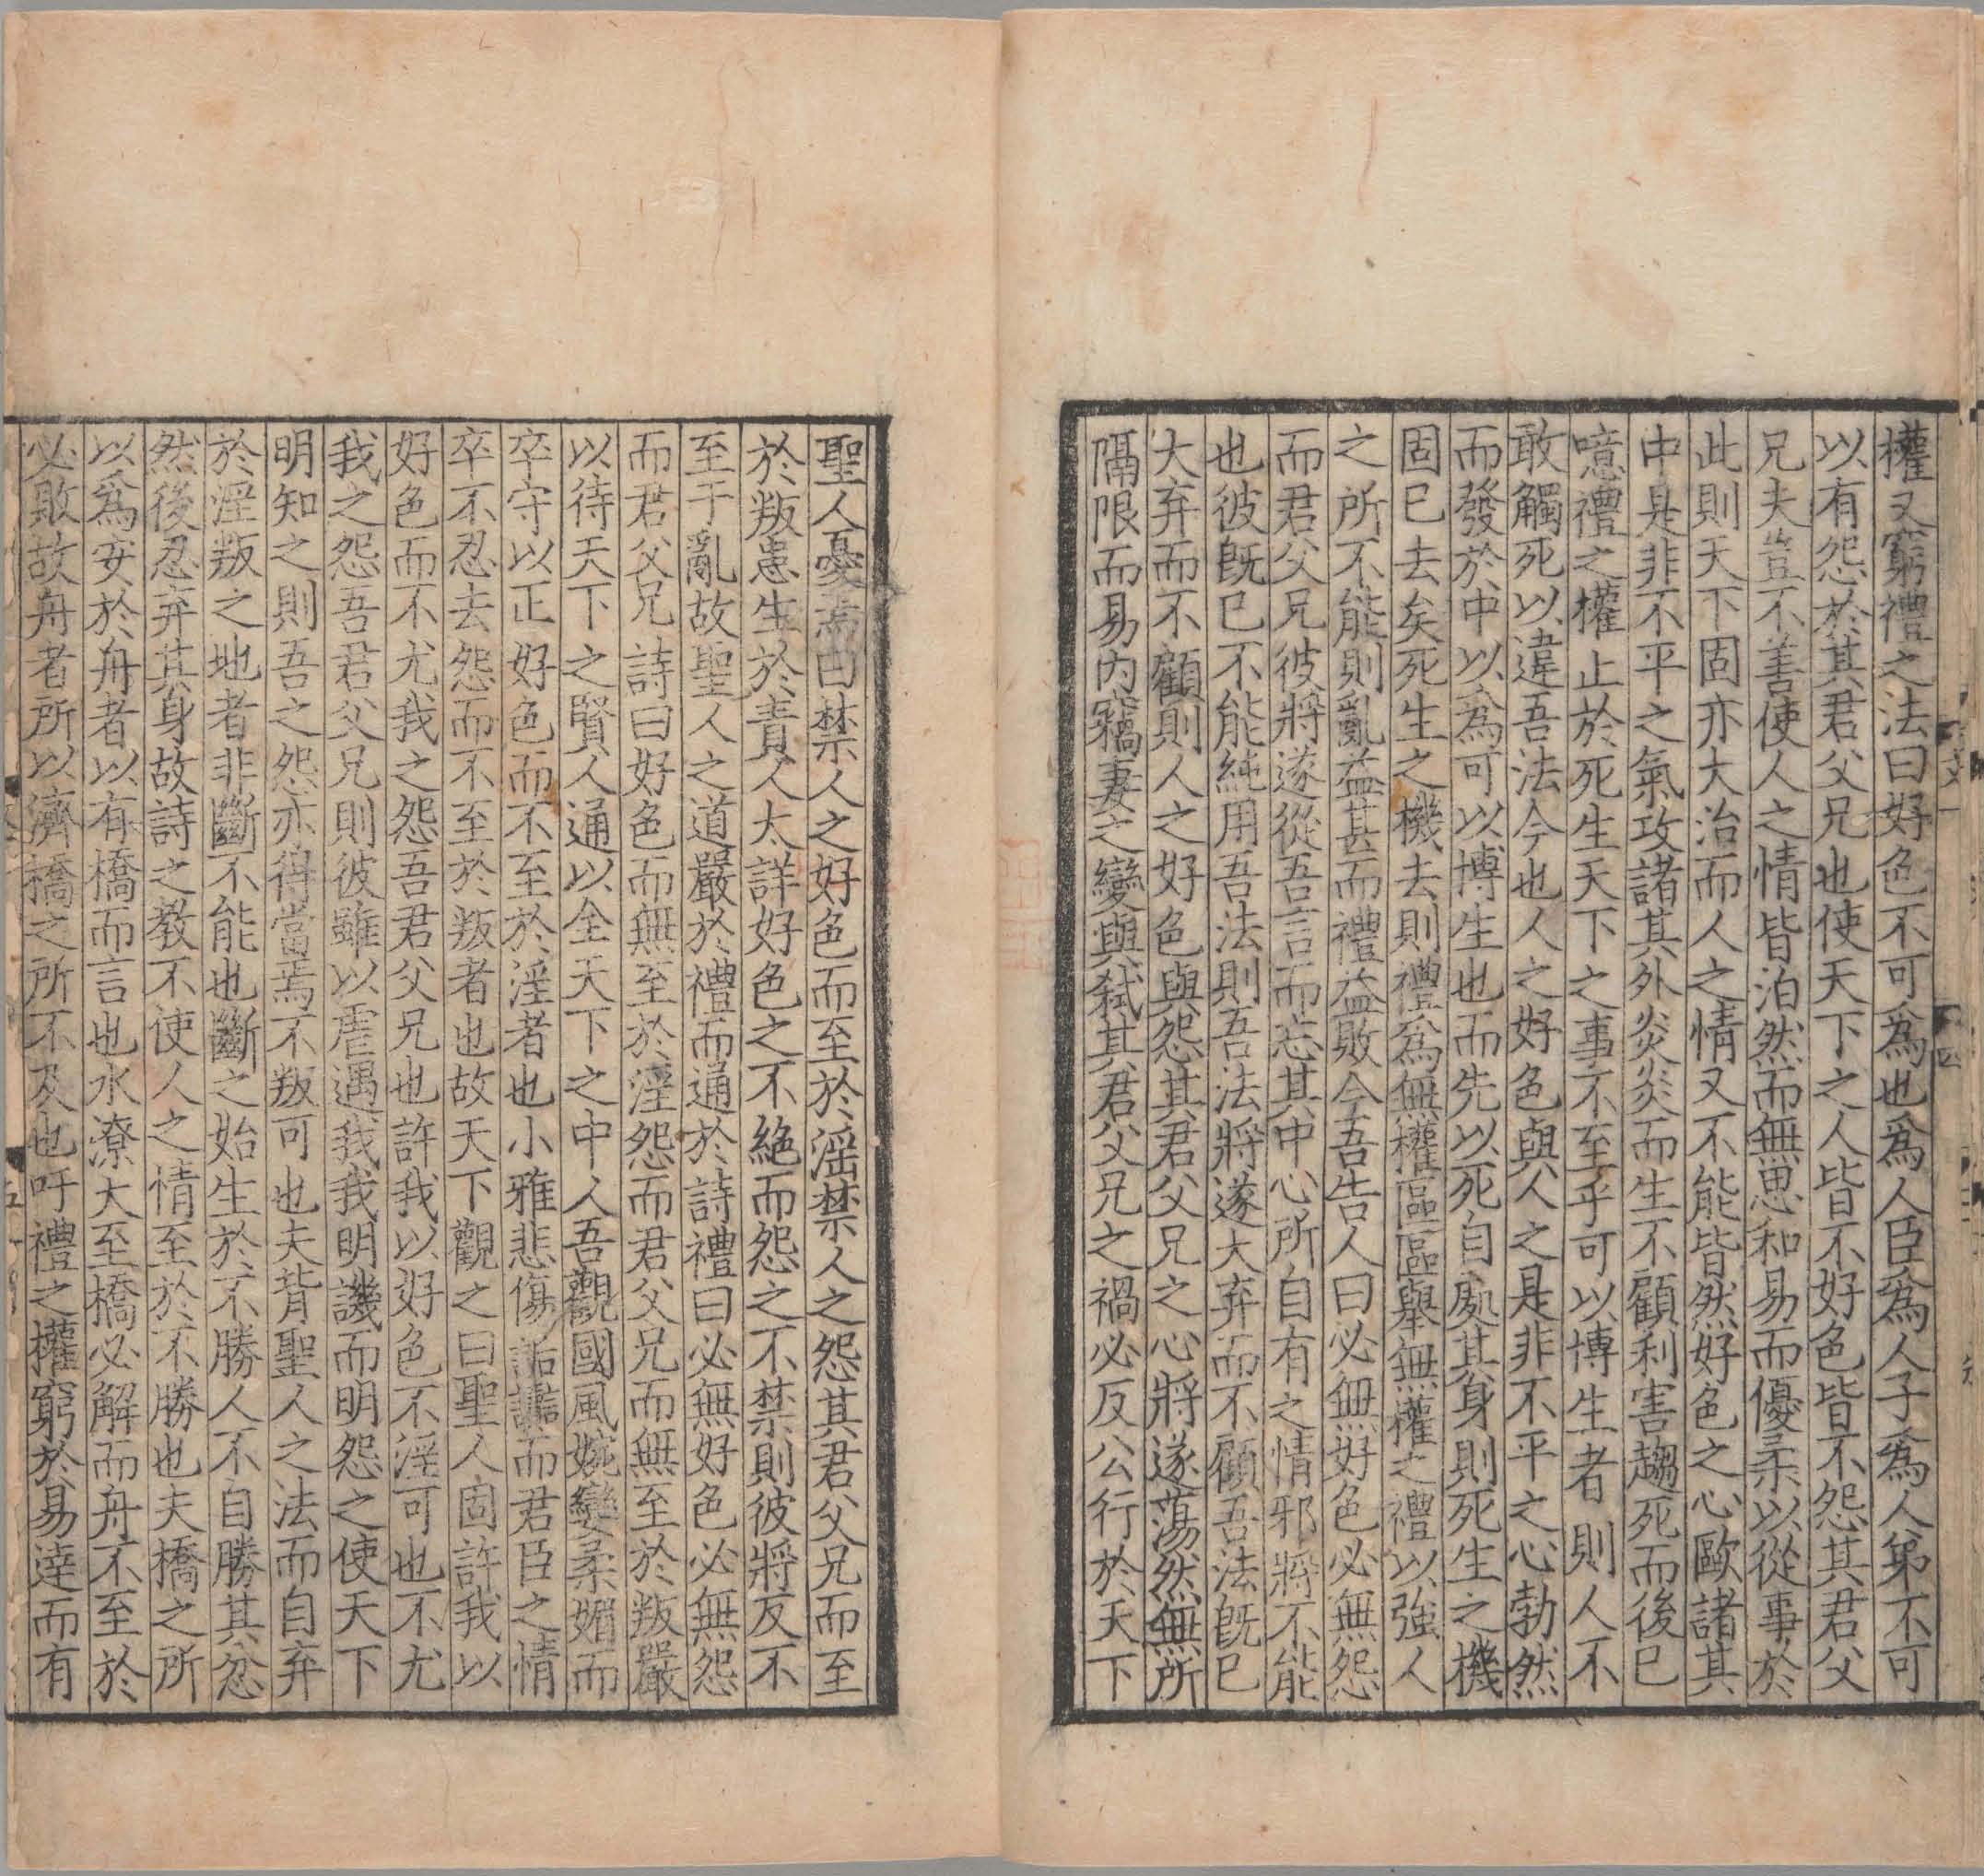 權又窮禮之法曰好色不可爲也爲人臣爲人子爲人弟不可
以有怨於其君父兄也使天下之人皆不好色皆不怨其君父
兄夫豈不善使人之情皆泊然而無思和易而優柔以從事於
此則天下固亦大治而人之情又不能皆然好色之心歐諸其
中是非不平之氣攻諸其外炎炎而生不顧利害趨死而後已
噫禮之權止於死生天下之事不至乎可以博生者則人不
敢觸死以違吾法今也人之好色與人之是非不平之心勃然
而發於中以爲可以博生也而先以死自處其身則死生之機
固已去矣死生之機去則禮爲無權區區舉無權之禮以強人
之所不能則亂益甚而禮益敗今吾告人曰必無好色必無怨
而君父兄彼將遂從吾言而忘其中心所自有之情邪將不能
也彼旣已不能純用吾法則吾法將遂大弃而不顧吾法旣已
大弃而不顧則人之好色與怨其君父兄之心將遂蕩然無所
隔限而易內竊妻之變與弒其君父兄之禍必反公行於天下
聖人憂焉曰禁人之好色而至於淫禁人之怨其君父兄而至
於叛患生於責人太詳好色之不絶而怨之不禁則彼將反不
至于亂故聖人之道嚴於禮而通於詩禮曰必無好色必無怨
而君父兄詩曰好色而無至於淫怨而君父兄而無至於叛嚴
以待天下之賢人通以全天下之中人吾觀國風婉孌柔媚而
卒守以正好色而不至於淫者也小雅悲傷詬讟而君臣之情
卒不忍去怨而不至於叛者也故天下觀之曰聖人固許我以
好色而不尤我之怨吾君父兄也許我以好色不淫可也不尤
我之怨吾君父兄則彼雖以虐遇我我明譏而明怨之使天下
明知之則吾之怨亦得當焉不叛可也夫背聖人之法而自弃
於淫叛之地者非斷不能也斷之始生於不勝人不自勝其忿
然後忍弃其身故詩之教不使人之情至於不勝也夫橋之所
以爲安於舟者以有橋而言也水潦大至橋必解而舟不至於
必敗故舟者所以濟橋之所不及也吁禮之權窮於易達而有